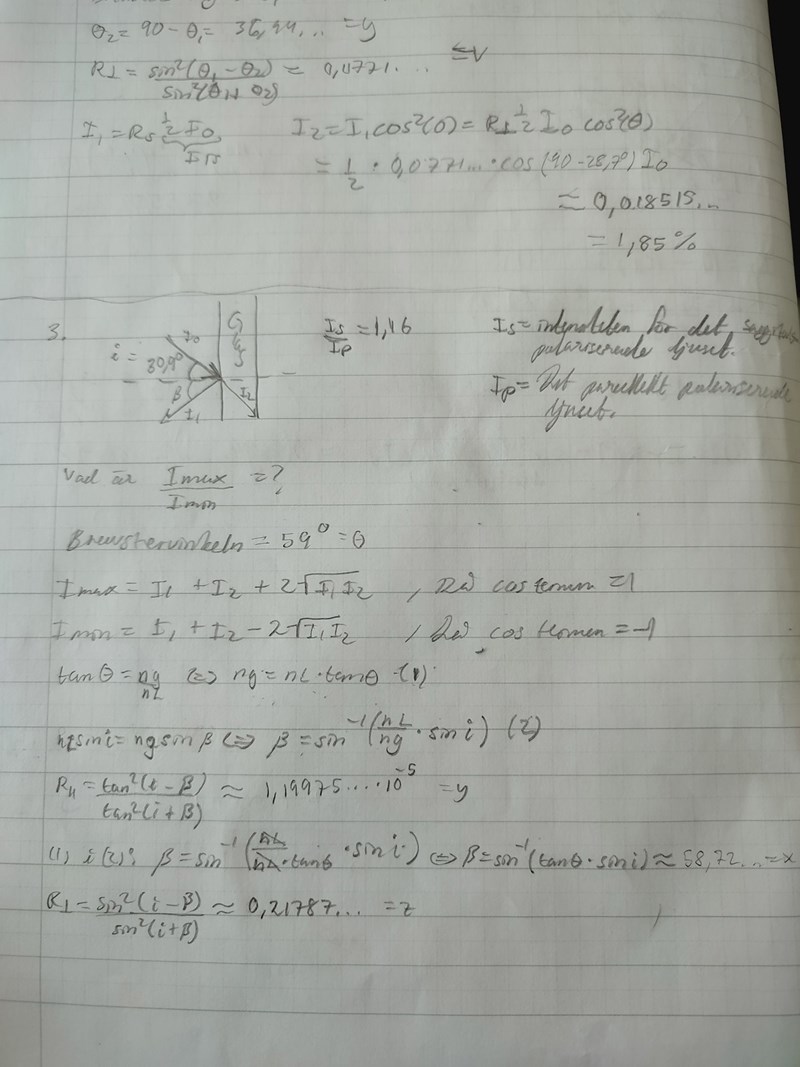 θ₂ = 90 - θ₁ = 36,99... = y
R⊥ = sin²(θ₁ - θ₂) / sin²(θ₁+ θ₂) ≈ 0,0771... = V
I₁ = Rs ½ I₀ I₂ = I₁cos²(θ) = R⊥ ½ I₀ cos²(θ)
= 1/2 · 0,0771... · cos(90 - 28,7°) I₀
≈ 0,018515...
= 1,85 %
3. i = 30,9° β I₀ I₁ I₂ Glas
Is/Ip = 1,16
Is = intensiteten för det
polariserande ljuset.
Ip = Det parellellt polariserande
ljuset.
Vad är Imax/Imin = ?
Brewstervinkeln = 59° = θ
Imax = I₁ + I₂ + 2√I₁I₂ , Då cos termen = 1
Imin = I₁ + I₂ - 2√I₁I₂ , Då cos termen = -1
tan θ = ng/nL ⇔ ng = nL · tanθ (1)
nLsin i = ngsin β ⇔ β = sin⁻¹(nL/ng · sin i) (2)
R∥ = tan²(i - β) / tan²(i + β) ≈ 1,19975....·10⁻⁵ = y
(1) i (2): β = sin⁻¹(nL/nL·tanθ · sin i) ⇔ β = sin⁻¹(tanθ · sin i) ≈ 58,72... = x
R⊥ = sin²(i - β) / sin²(i + β) ≈ 0,21787... = z